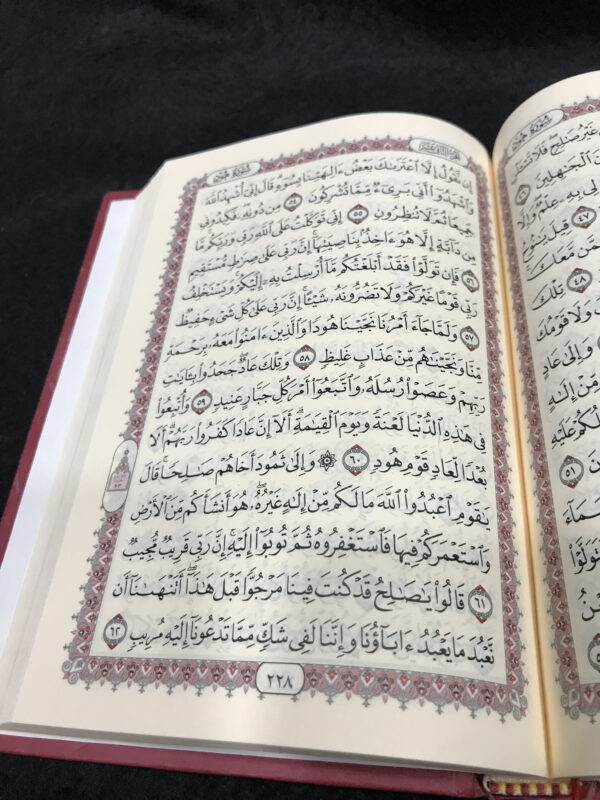 سُورَةُ هُودٍ
غَيْرُ صَٰلِحٍ فَلَا تَسْـَٔلْنِ
ٱلْجَٰهِلِينَ
لِى بِهِۦ عِلْمٌ وَإِلَّا
٤٧ قِيلَ يَٰنُوحُ
مَّعَكَ
٤٨ تِلْكَ
وَلَا قَوْمُكَ
وَإِلَىٰ عَادٍ
مِّنْ إِلَٰهٍ
عَلَيْهِ
٥١
الجزء الثاني عشر سُورَةُ هُودٍ
إِن نَّقُولُ إِلَّا ٱعْتَرَىٰكَ بَعْضُ ءَالِهَتِنَا بِسُوٓءٍ قَالَ إِنِّىٓ أُشْهِدُ ٱللَّهَ
وَٱشْهَدُوٓا۟ أَنِّى بَرِىٓءٌ مِّمَّا تُشْرِكُونَ ٥٤ مِن دُونِهِۦ فَكِيدُونِى
جَمِيعًا ثُمَّ لَا تُنظِرُونِ ٥٥ إِنِّى تَوَكَّلْتُ عَلَى ٱللَّهِ رَبِّى وَرَبِّكُم مَّا
مِن دَآبَّةٍ إِلَّا هُوَ ءَاخِذٌۢ بِنَاصِيَتِهَآ إِنَّ رَبِّى عَلَىٰ صِرَٰطٍ مُّسْتَقِيمٍ
٥٦ فَإِن تَوَلَّوْا۟ فَقَدْ أَبْلَغْتُكُم مَّآ أُرْسِلْتُ بِهِۦٓ إِلَيْكُمْ وَيَسْتَخْلِفُ
رَبِّى قَوْمًا غَيْرَكُمْ وَلَا تَضُرُّونَهُۥ شَيْـًٔا إِنَّ رَبِّى عَلَىٰ كُلِّ شَىْءٍ حَفِيظٌ
٥٧ وَلَمَّا جَآءَ أَمْرُنَا نَجَّيْنَا هُودًا وَٱلَّذِينَ ءَامَنُوا۟ مَعَهُۥ بِرَحْمَةٍ
مِّنَّا وَنَجَّيْنَٰهُم مِّنْ عَذَابٍ غَلِيظٍ ٥٨ وَتِلْكَ عَادٌ جَحَدُوا۟ بِـَٔايَٰتِ
رَبِّهِمْ وَعَصَوْا۟ رُسُلَهُۥ وَٱتَّبَعُوٓا۟ أَمْرَ كُلِّ جَبَّارٍ عَنِيدٍ ٥٩ وَأُتْبِعُوا۟
فِى هَٰذِهِ ٱلدُّنْيَا لَعْنَةً وَيَوْمَ ٱلْقِيَٰمَةِ أَلَآ إِنَّ عَادًا كَفَرُوا۟ رَبَّهُمْ أَلَا
بُعْدًا لِّعَادٍ قَوْمِ هُودٍ ٦٠ ۞ وَإِلَىٰ ثَمُودَ أَخَاهُمْ صَٰلِحًا قَالَ
يَٰقَوْمِ ٱعْبُدُوا۟ ٱللَّهَ مَا لَكُم مِّنْ إِلَٰهٍ غَيْرُهُۥ هُوَ أَنشَأَكُم مِّنَ ٱلْأَرْضِ
وَٱسْتَعْمَرَكُمْ فِيهَا فَٱسْتَغْفِرُوهُ ثُمَّ تُوبُوٓا۟ إِلَيْهِ إِنَّ رَبِّى قَرِيبٌ مُّجِيبٌ
٦١ قَالُوا۟ يَٰصَٰلِحُ قَدْ كُنتَ فِينَا مَرْجُوًّا قَبْلَ هَٰذَآ أَتَنْهَىٰنَآ أَن
نَّعْبُدَ مَا يَعْبُدُ ءَابَآؤُنَا وَإِنَّنَا لَفِى شَكٍّ مِّمَّا تَدْعُونَآ إِلَيْهِ مُرِيبٍ ٦٢
٢٢٨